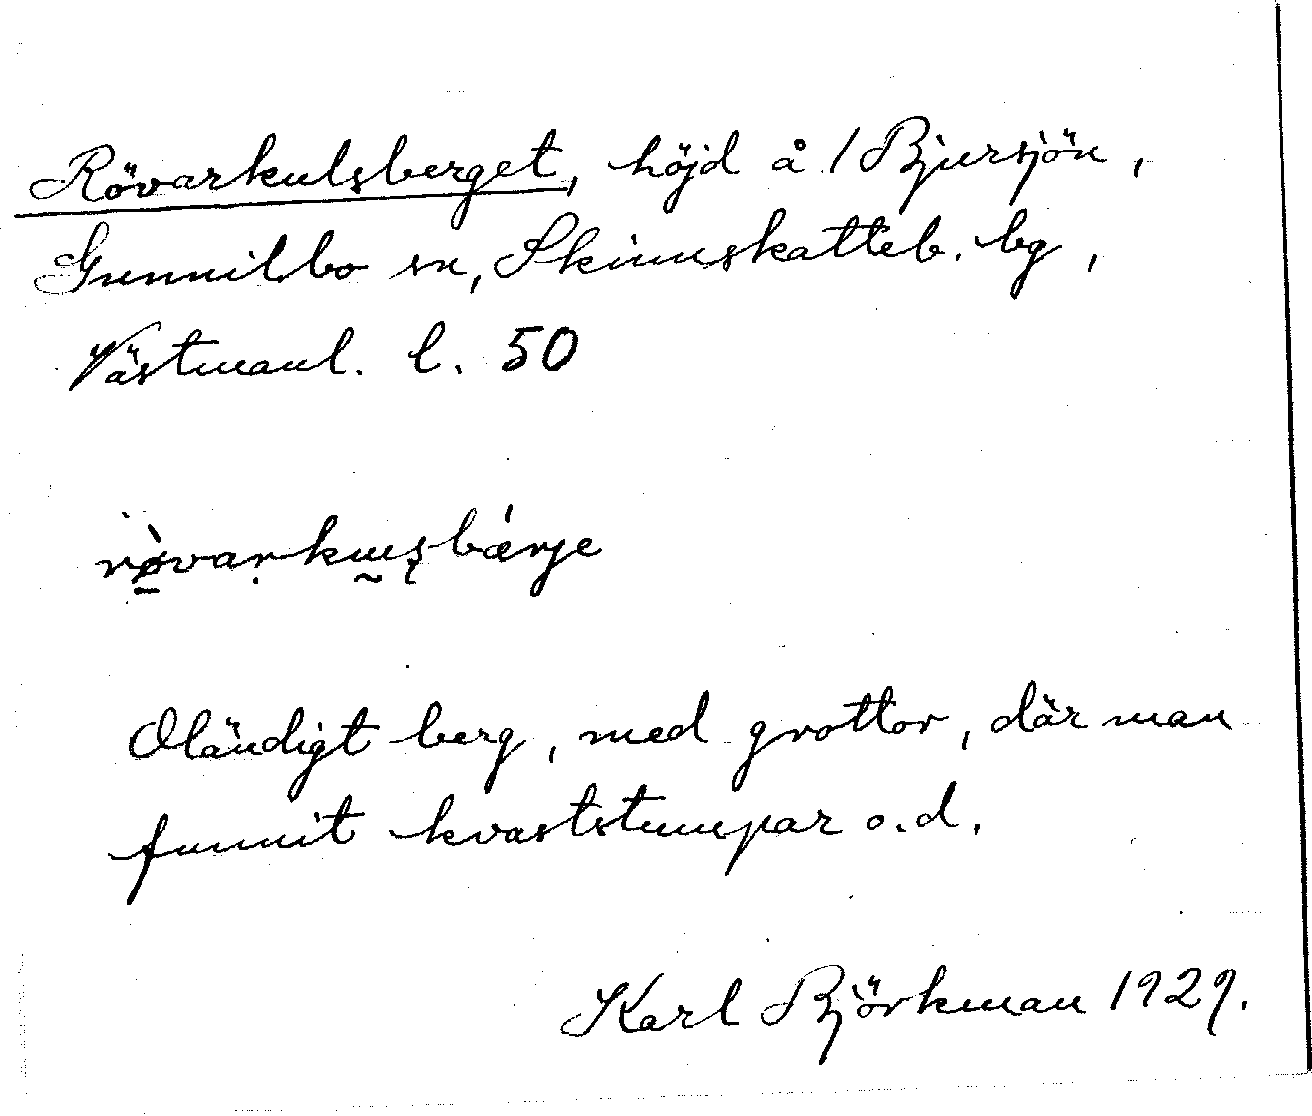 Rövarkulsberget, höjd å 1 Bjursjön,
Gunnilbo sn, Skinnskatteb. bg,
Västmanl. l. 50
rø̀varkuṵsbærje
Oländigt berg, med grottor, där man
funnit kvaststumpar o.d.
Karl Björkman 1929.